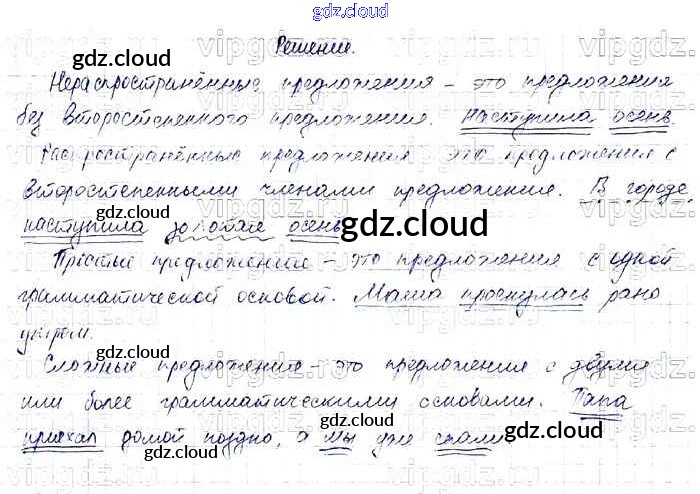 gdz.cloud
Решение.
gdz.cloud
Нераспространённые предложения – это предложения
без второстепенного предложения. Наступила осень.
gdz.cloud
Распространённые предложения – это предложения с
второстепенными членами предложения. В городе
gdz.cloud
наступила золотая осень.
gdz.cloud
Простые предложения – это предложения с одной
грамматической основой. Мама проснулась рано
gdz.cloud
утром.
gdz.cloud
Сложные предложения – это предложения с двумя
или более грамматическими основами. Папа
gdz.cloud
приехал домой поздно, а мы уже спали.
gdz.cloud